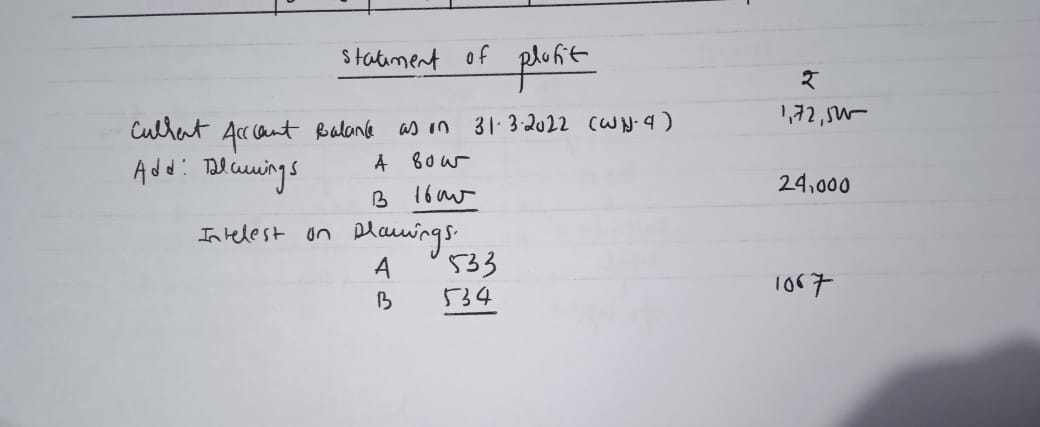 Statement of profit
₹
Current Account Balance as on 31.3.2022 (WN-4) 1,72,500
Add: Drawings A 8000
B 16000 24,000
Interest on Drawings.
A 533
B 534 1067